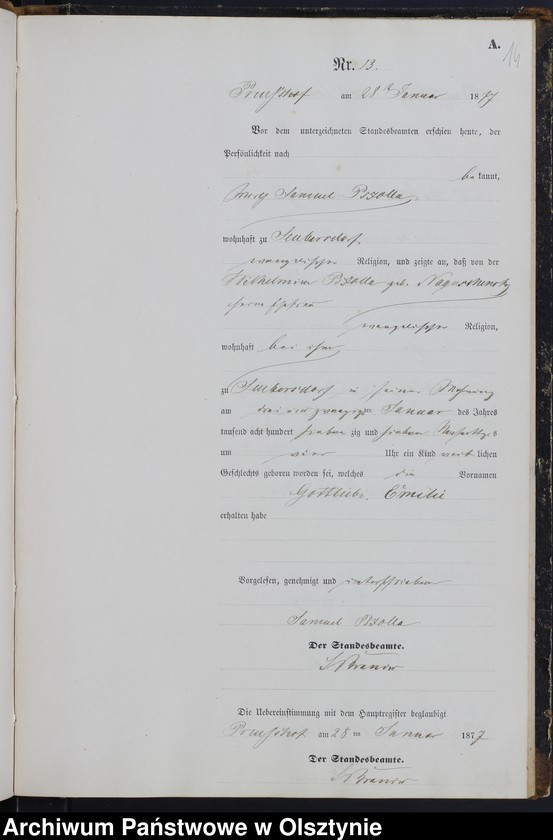 A.
14
Nr. 13.
am 28 t Januar 1877
Vor dem unterzeichneten Standesbeamten erschien heute, der
Persönlichkeit nach
bekannt,
Samuel
wohnhaft zu Seubersdorf.
evangelischer Religion, und zeigte an, daß von der
Wilhelmine geb.
seiner Ehefrau
evangelischer Religion,
wohnhaft bei ihm
zu Seubersdorf in seiner Wohnung
am drei und zwanzigsten Januar des Jahres
tausend acht hundert siebenzig und sieben Nachmittags
um vier Uhr ein Kind weiblichen
Geschlechts geboren worden sei, welches die Vornamen
Gottliebe, Emilie
erhalten habe
Vorgelesen, genehmigt und unterschrieben
Samuel
Der Standesbeamte.
Die Uebereinstimmung mit dem Hauptregister beglaubigt
am 28 ten Januar 1877
Der Standesbeamte.
Archiwum Państwowe w Olsztynie